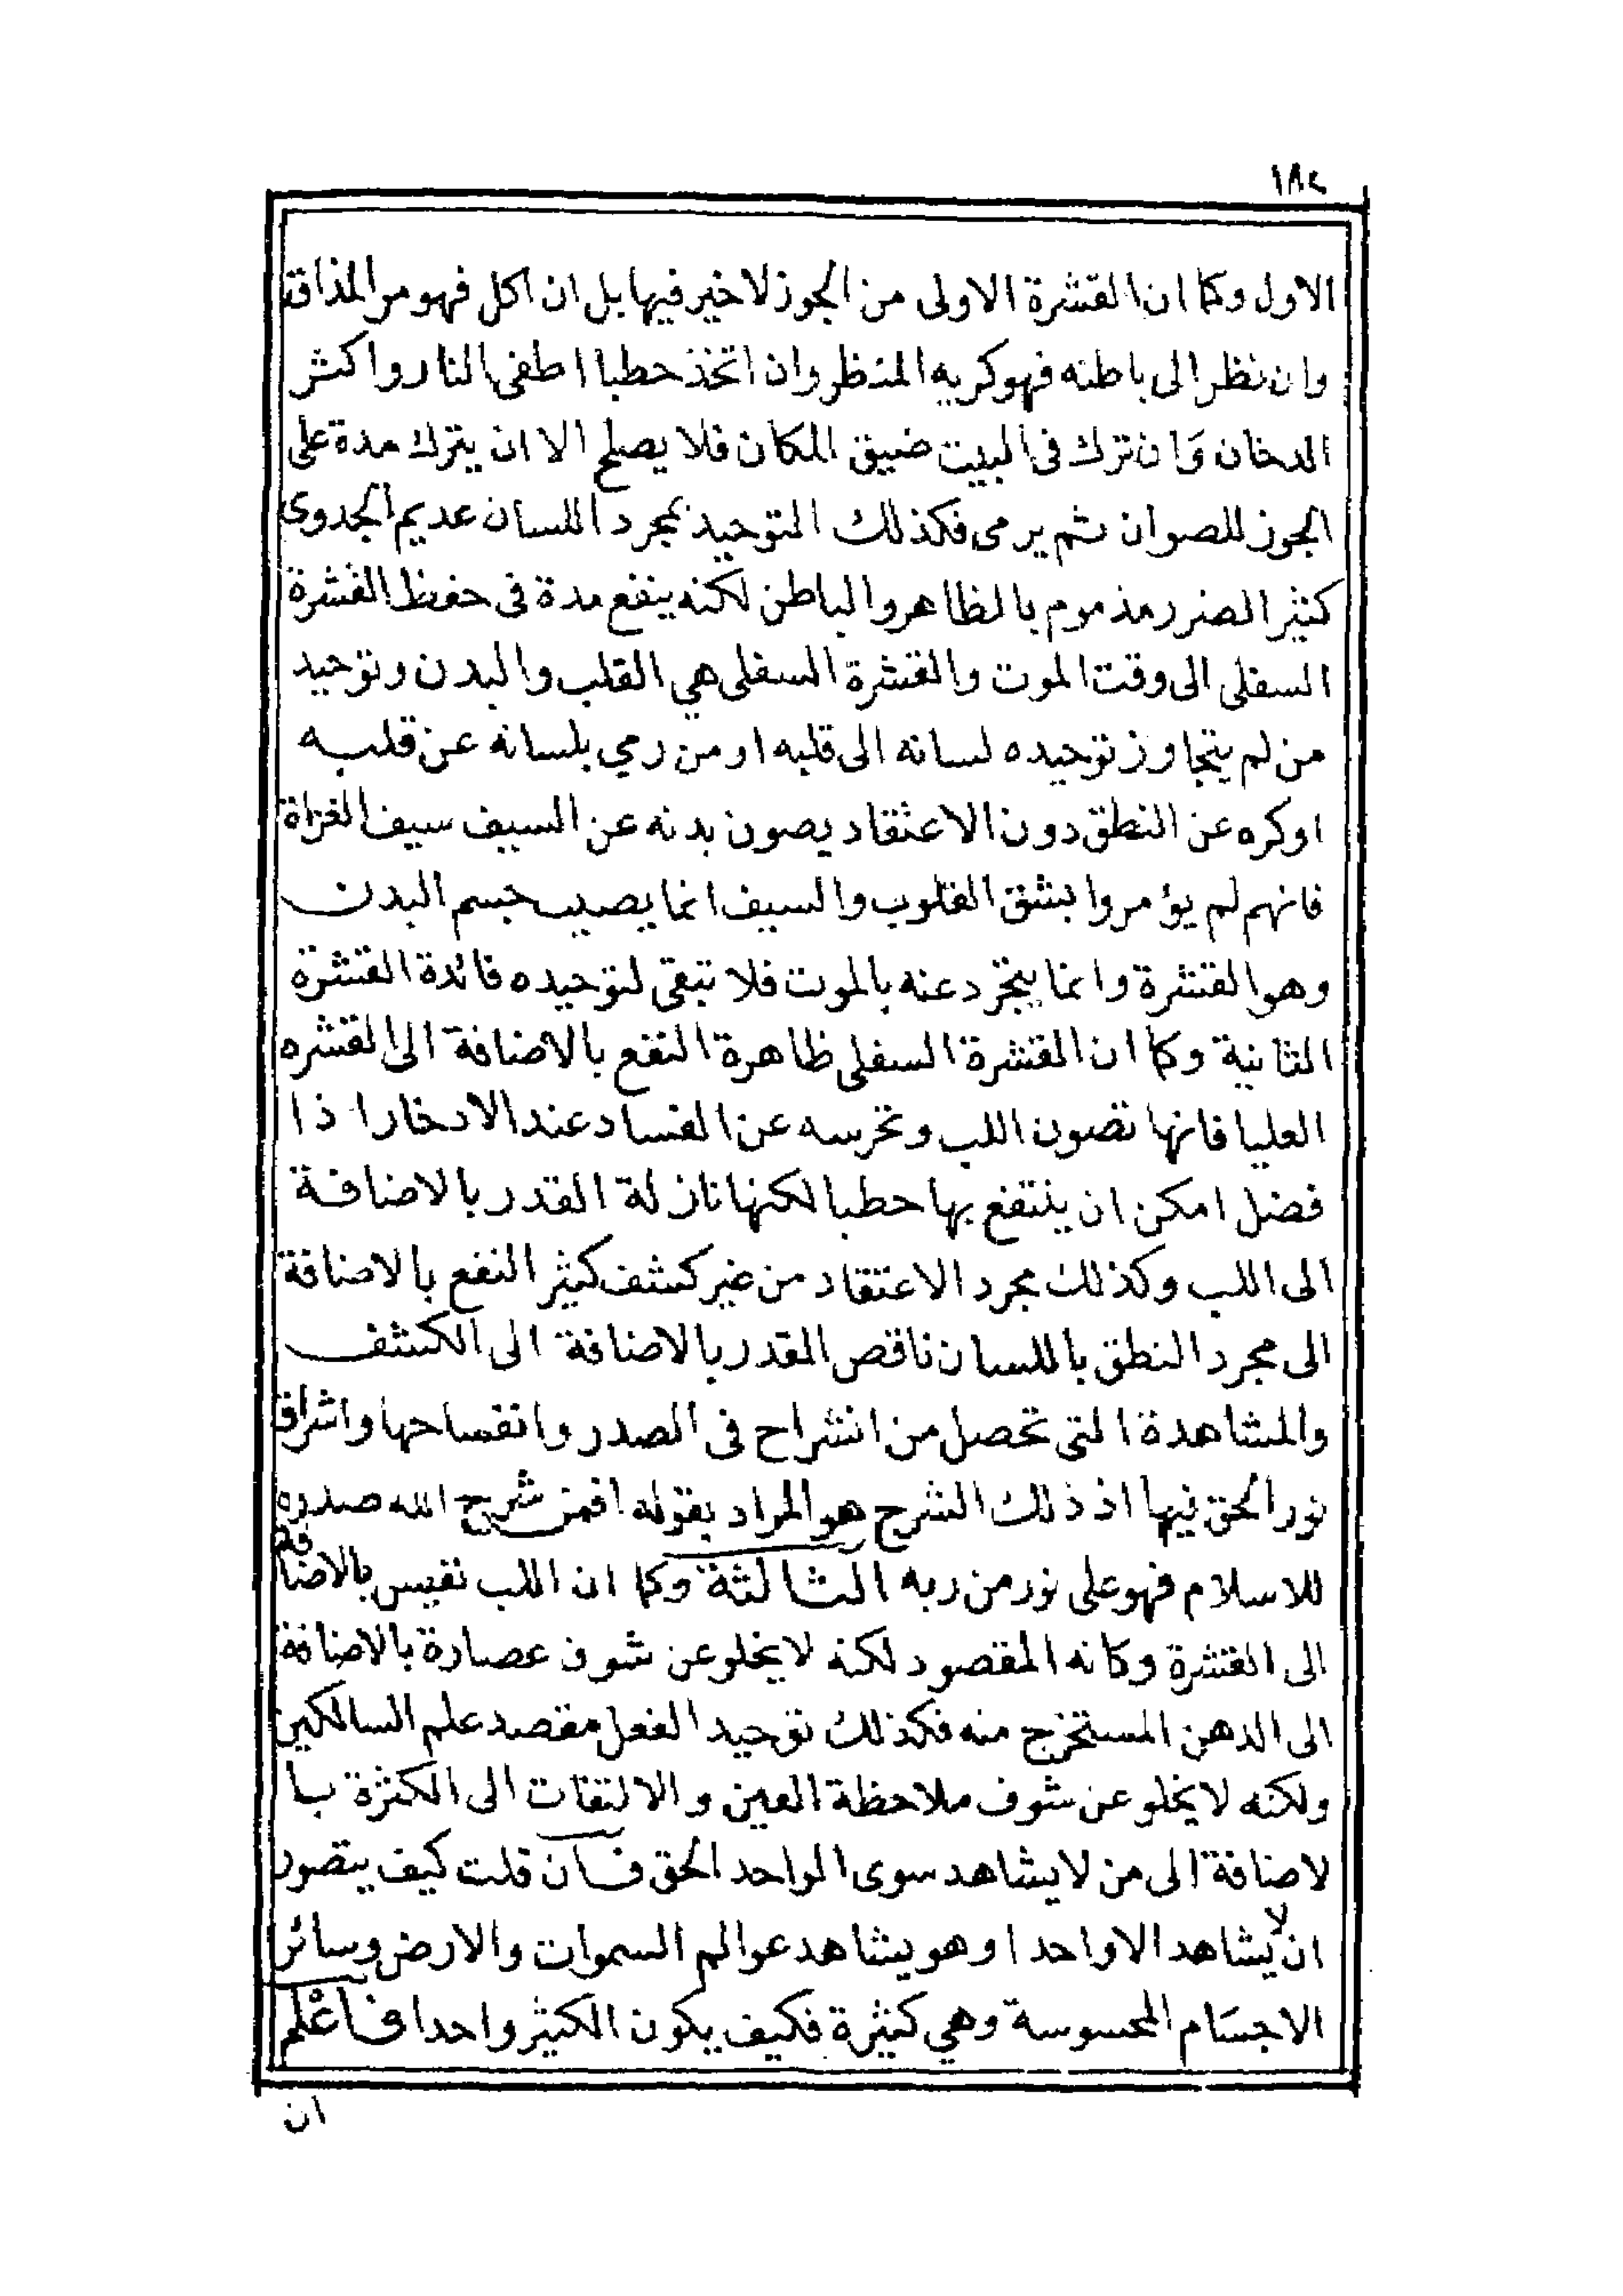 ١٨٢
الاول وكما ان القشرة الاولى من الجوز لا خير فيها بل ان اكل فهو مر المذاق
وان نظر الى باطنه فهو كريه المنظر وان اتخذ حطبا اطفى النار واكثر
الدخان وَان ترك فى البيت ضيق المكان فلا يصلح الا ان يترك مدة على
الجوز للصوان ثم يرمى فكذلك التوحيد بمجرد اللسان عديم الجدوى
كثير الضرر مذموم بالظاهر والباطن لكنه ينفع مدة فى حفظ القشرة
السفلى الى وقت الموت والقشرة السفلى هي القلب والبدن وتوحيد
من لم يتجاوز توحيده لسانه الى قلبه او من رمي بلسانه عن قلبه
او كره عن النطق دون الاعتقاد يصون بدنه عن السيف سيف الغزاة
فانهم لم يؤمروا بشق القلوب والسيف انما يصيب جسم البدن
وهو القشرة وانما يتجرد عنه بالموت فلا تبقى لتوحيده فائدة القشرة
الثانية وكما ان القشرة السفلى ظاهرة النفع بالاضافة الى القشره
العليا فانها تصون اللب وتحرسه عن الفساد عند الادخار اذا
فضل امكن ان ينتفع بها حطبا لكنها نازلة القدر بالاضافة
الى اللب وكذلك مجرد الاعتقاد من غير كشف كثير النفع بالاضافة
الى مجرد النطق باللسان ناقص القدر بالاضافة الى الكشف
والمشاهدة التى تحصل من انشراح فى الصدر وانفساحها واشراق
نور الحق فيها اذ ذلك الشرح هو المراد بقوله افمن شرح الله صدره
للاسلام فهو على نور من ربه الثالثة وكما ان اللب نفيس بالاضافة
الى القشرة وكانه المقصود لكنه لا يخلو عن شوف عصارة بالاضافة
الى الدهن المستخرج منه فكذلك توحيد الفعل مقصد علم السالكين
ولكنه لا يخلو عن شوف ملاحظة العين والالتفات الى الكثرة با
لاضافة الى من لا يشاهد سوى الواحد الحق فان قلت كيف يتصور
ان لا يشاهد الا واحدا وهو يشاهد عوالم السموات والارض وسائر
الاجسَام المحسوسة وهي كثيرة فكيف يكون الكثير واحدا فاعْلم
ان